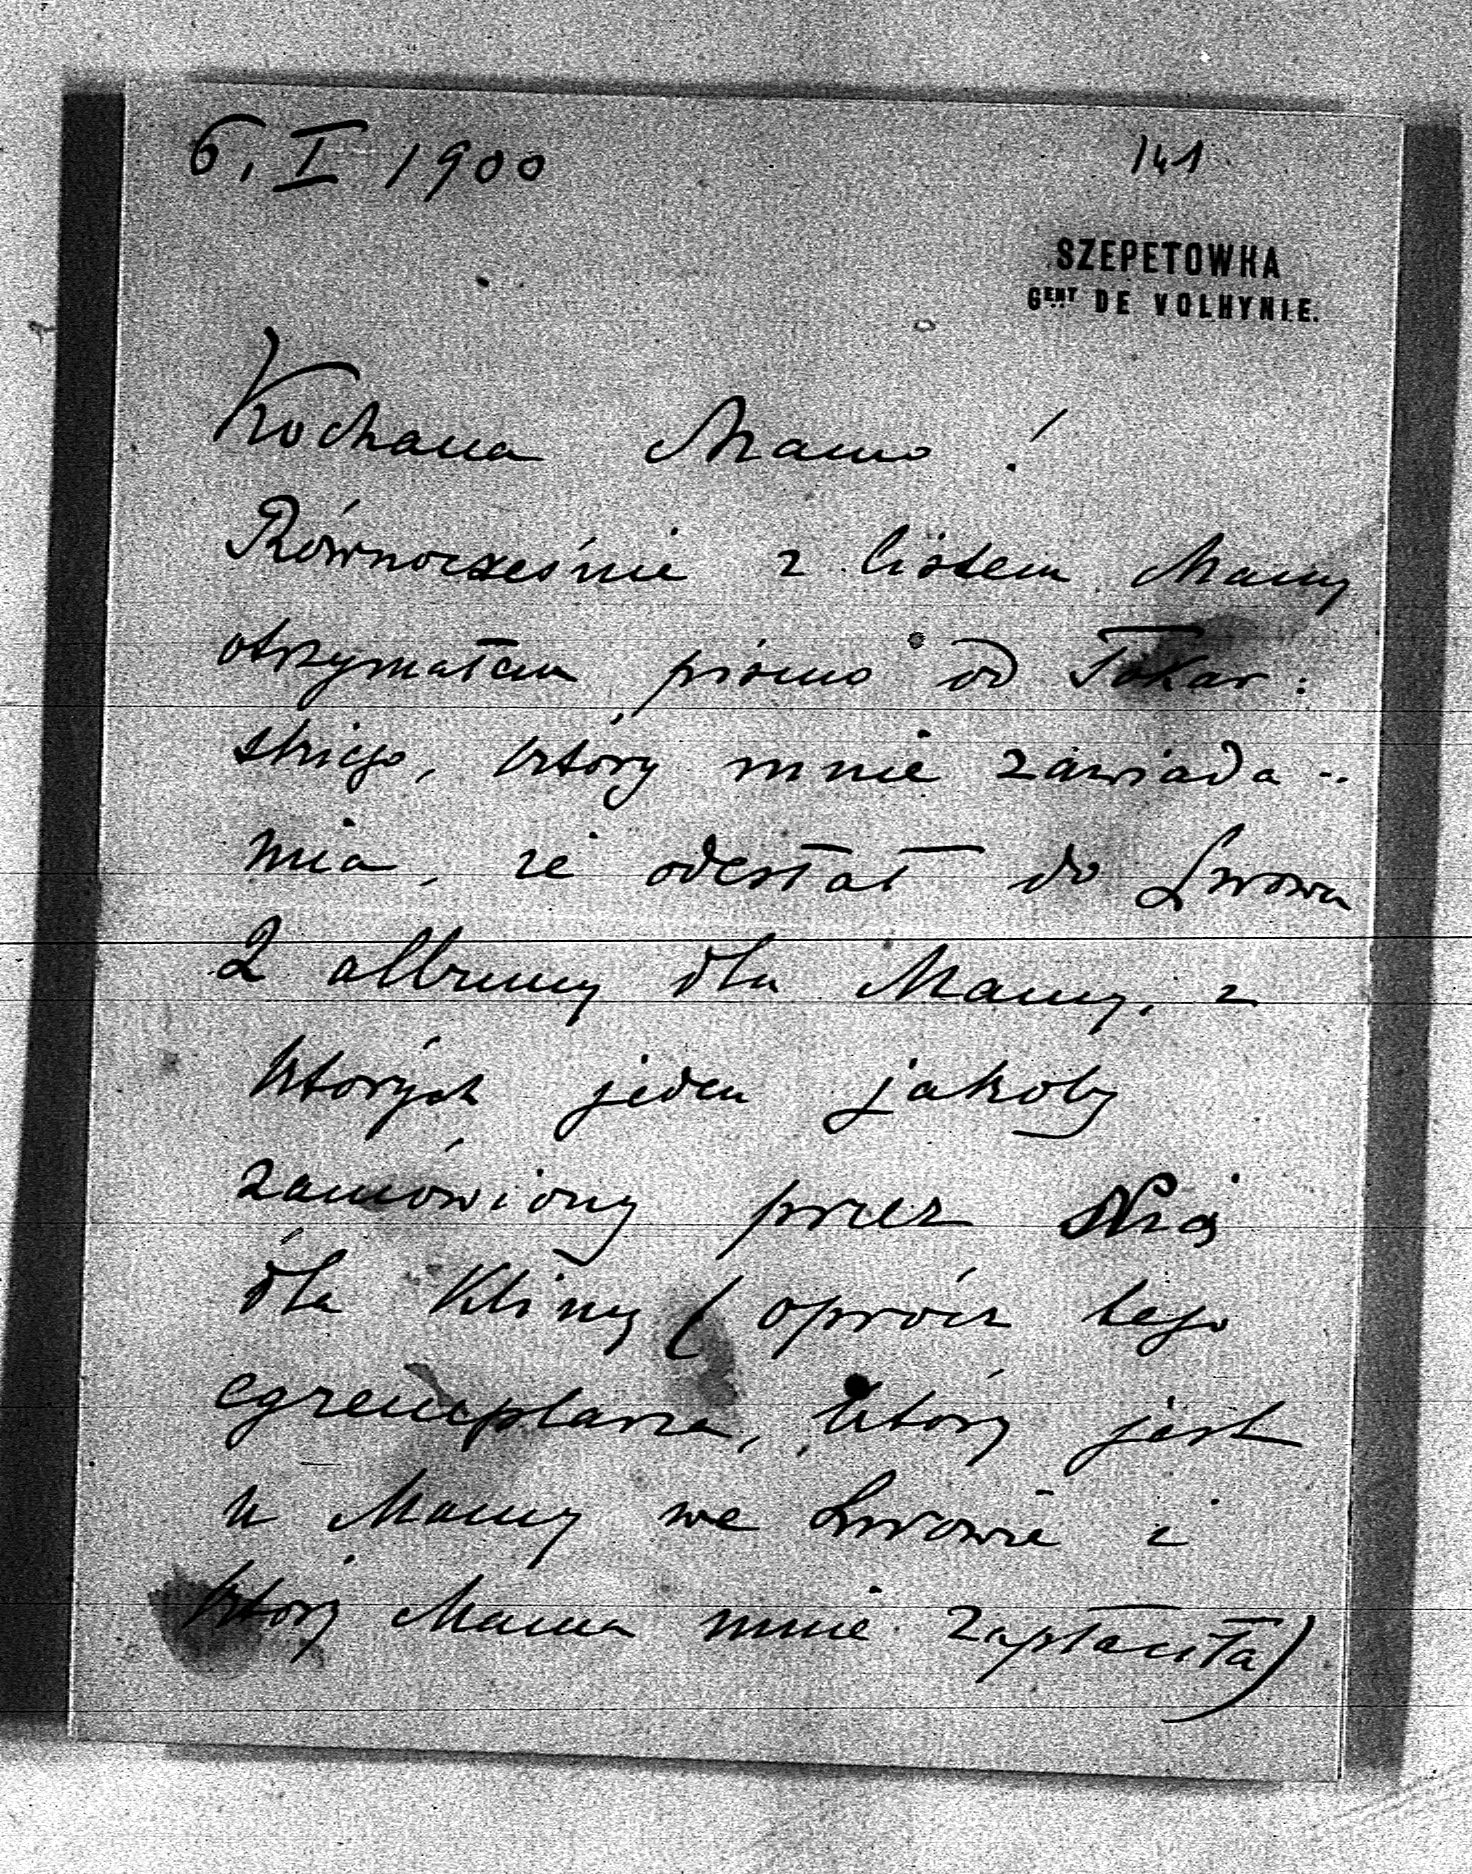 6. I 1900
141
SZEPETOWKA
GENT DE VOLHYNIE.
Kochana Mamo!
Równocześnie z listem Mamy
otrzymałem pismo od Tokar:
skiego, który mnie zawiada..
mia, że odesłał do Lwowa
2 albumy dla Mamy, z
których jeden jakoby
zamówiony przez
dla Kliny (oprócz tego
egzemplarza, który jest
u Mamy we Lwowie i
który Mama mnie zapłaciła)